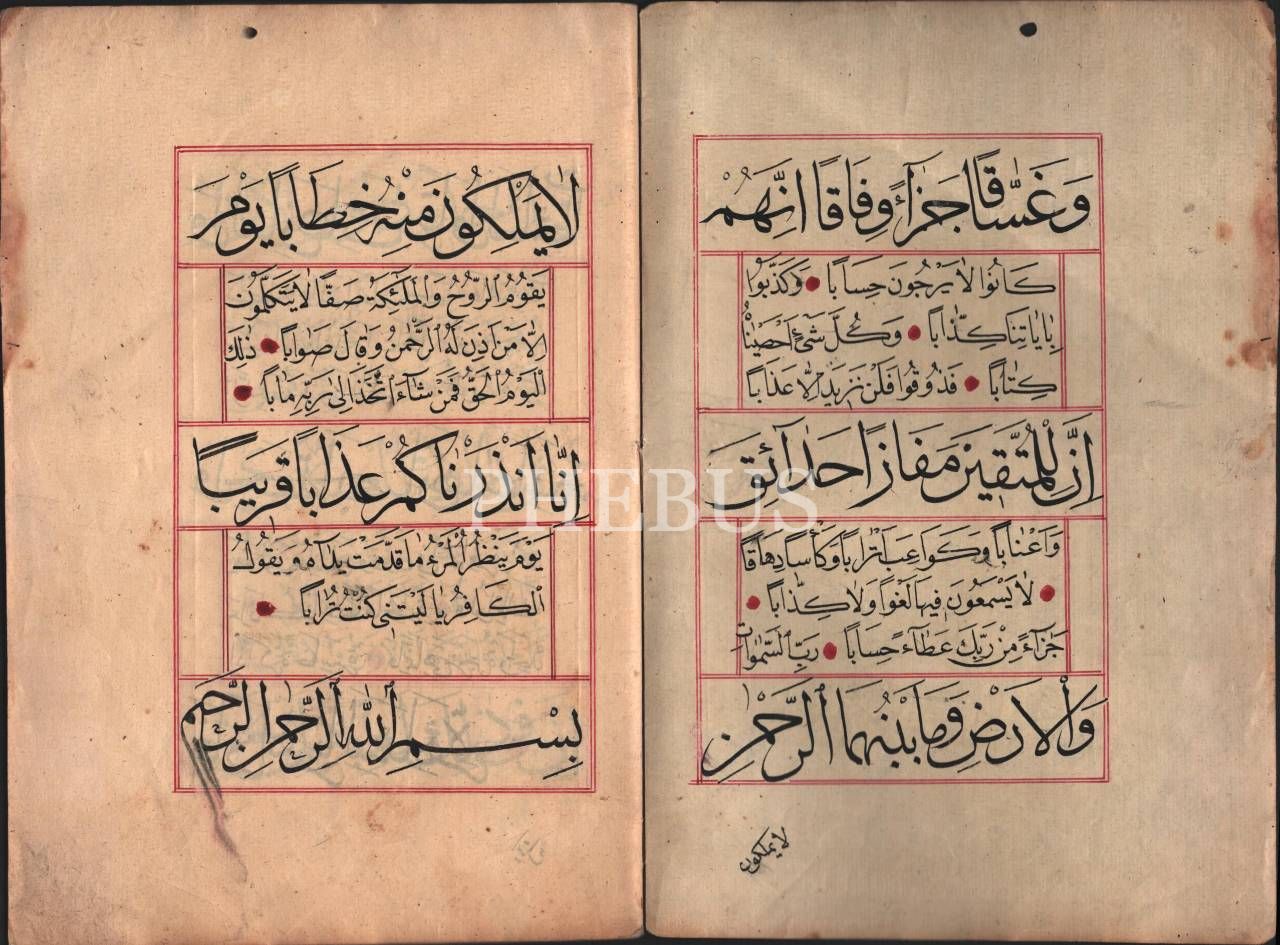 وَغَسَّاقًا جَزَآءً وِفَاقًا اِنَّهُمْ
كَانُوا لَا يَرْجُونَ حِسَابًا وَكَذَّبُوا
بِاٰيَاتِنَا كِذَّابًا وَكُلَّ شَيْءٍ اَحْصَيْنَاهُ
كِتَابًا فَذُوقُوا فَلَنْ نَزِيدَ اِلَّا عَذَابًا
اِنَّ لِلْمُتَّقِينَ مَفَازًا حَدَآئِقَ
وَاَعْنَابًا وَكَوَاعِبَ اَتْرَابًا وَكَأْسًا دِهَاقًا
لَا يَسْمَعُونَ فِيهَا لَغْوًا وَلَا كِذَّابًا
جَزَآءً مِنْ رَبِّكَ عَطَآءً حِسَابًا رَبِّ السَّمٰوَاتِ
وَالْاَرْضِ وَمَا بَيْنَهُمَا الرَّحْمٰنِ
لا يملكون
لَا يَمْلِكُونَ مِنْهُ خِطَابًا يَوْمَ
يَقُومُ الرُّوحُ وَالْمَلٰٓئِكَةُ صَفًّا لَا يَتَكَلَّمُونَ
اِلَّا مَنْ اَذِنَ لَهُ الرَّحْمٰنُ وَقَالَ صَوَابًا ذٰلِكَ
الْيَوْمُ الْحَقُّ فَمَنْ شَآءَ اتَّخَذَ اِلٰى رَبِّهِ مَاٰبًا
اِنَّا اَنْذَرْنَاكُمْ عَذَابًا قَرِيبًا
يَوْمَ يَنْظُرُ الْمَرْءُ مَا قَدَّمَتْ يَدَاهُ وَيَقُولُ
الْكَافِرُ يَا لَيْتَنِي كُنْتُ تُرَابًا
بِسْمِ اللّٰهِ الرَّحْمٰنِ الرَّحِيمِ
PHEBUS